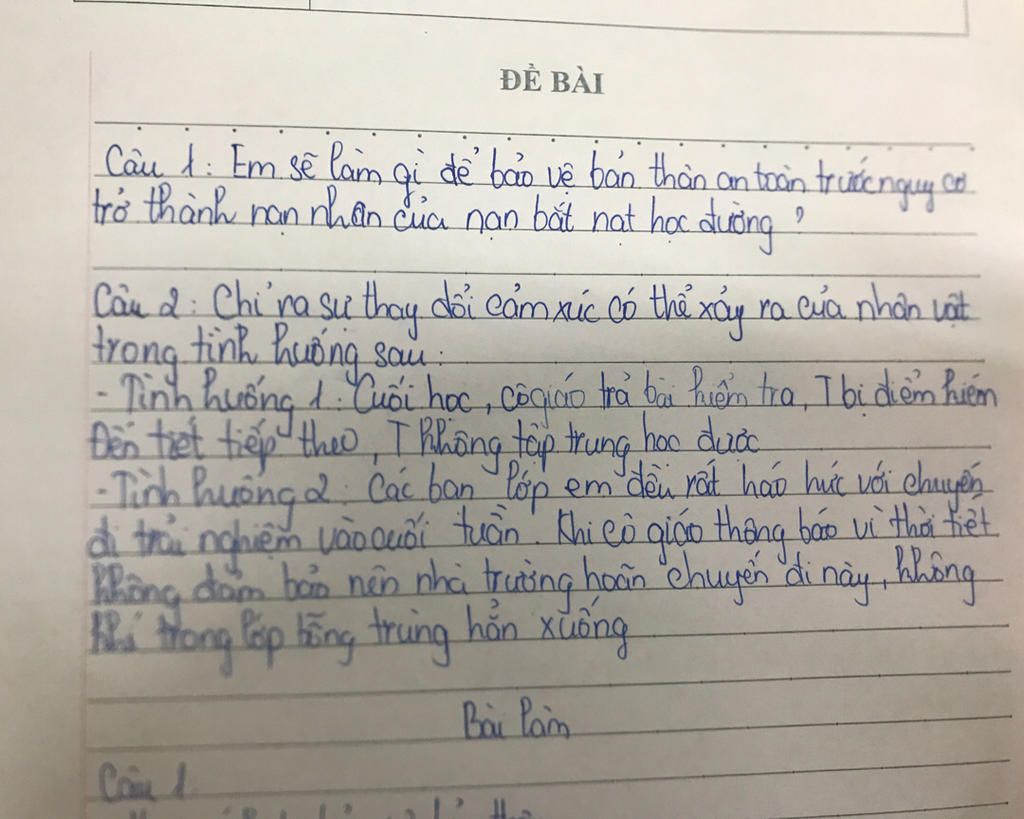 ĐỀ BÀI
Câu 1: Em sẽ làm gì để bảo vệ bản thân an toàn trước nguy cơ
trở thành nạn nhân của nạn bắt nạt học đường?
Câu 2: Chỉ ra sự thay đổi cảm xúc có thể xảy ra của nhân vật
trong tình huống sau:
- Tình huống 1: Cuối học, cô giáo trả bài kiểm tra, T bị điểm kiém
Đến tiết tiếp theo, T không tập trung học được
- Tình huống 2: Các bạn lớp em đều rất háo hức với chuyến
đi trải nghiệm vào cuối tuần. Khi cô giáo thông báo vì thời tiết
không đảm bảo nên nhà trường hoãn chuyến đi này, không
khí trong lớp bỗng trùng hẳn xuống
Bài làm
Câu 1